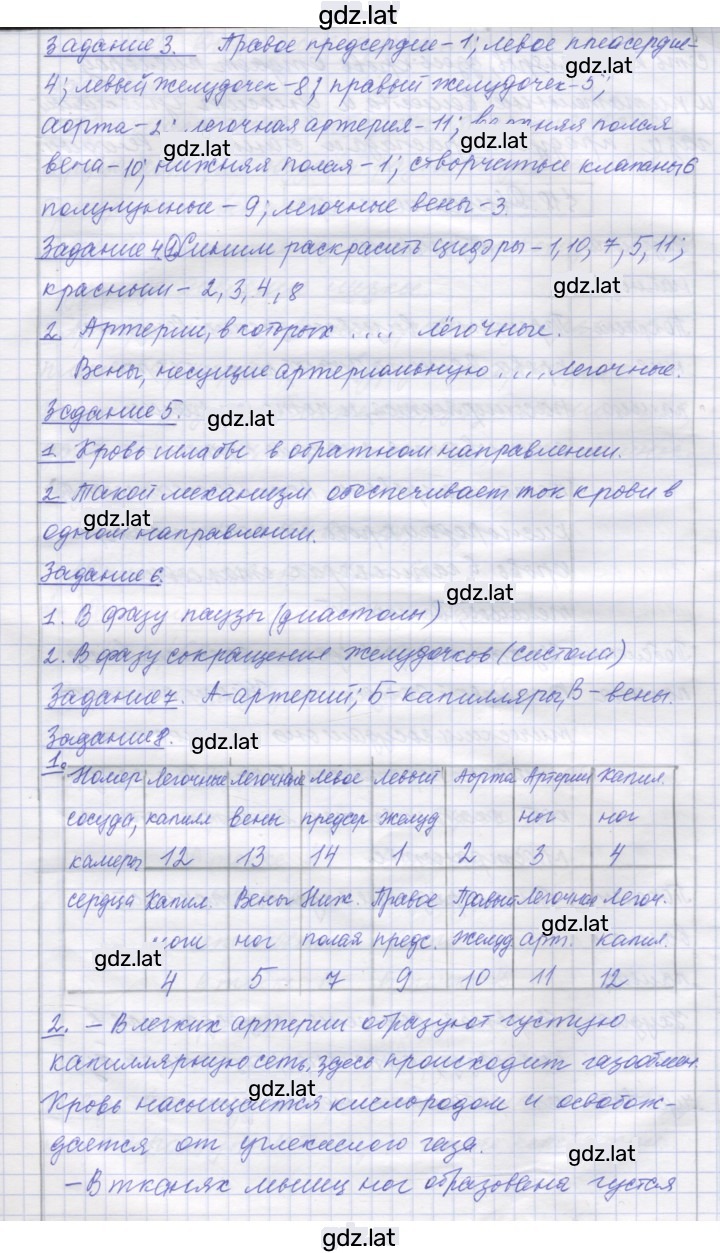 gdz.lat
Задание 3. Правое предсердие - 1; левое предсердие -
gdz.lat
4; левый желудочек - 8; правый желудочек - 5;
аорта - 2; легочная артерия - 11; верхняя полая
gdz.lat gdz.lat
вена - 10; нижняя полая - 1; створчатые клапаны 6
полулунные - 9; легочные вены - 3.
Задание 4. 1 Синим раскрасить цифры - 1, 10, 7, 5, 11;
красным - 2, 3, 4, 8
gdz.lat
2. Артерии, в которых .... лёгочные.
Вены, несущие артериальную .... легочные.
Задание 5.
gdz.lat
1. Кровь шла бы в обратном направлении.
2. Такой механизм обеспечивает ток крови в
gdz.lat
одном направлении.
Задание 6.
gdz.lat
1. В фазу паузы (диастолы)
2. В фазу сокращения желудочков (систола)
Задание 7. А - артерий; Б - капилляры, В - вены.
Задание 8.
gdz.lat
1.
Номер Легочные Легочные Левое Левый Аорта Артерии Капил.
сосуда, капилл вены предсер желуд ног ног
камеры 12 13 14 1 2 3 4
сердца Капил. Вены Ниж. Правое Правый Легочная Легоч.
gdz.lat
ноги ног полая предс. желуд арт. капил.
gdz.lat
4 5 7 9 10 11 12
2. - В легких артерии образуют густую
капиллярную сеть, здесь происходит газообмен.
gdz.lat
Кровь насыщается кислородом и освобож-
дается от углекислого газа.
gdz.lat
- В тканях мышц ног образована густая
gdz.lat